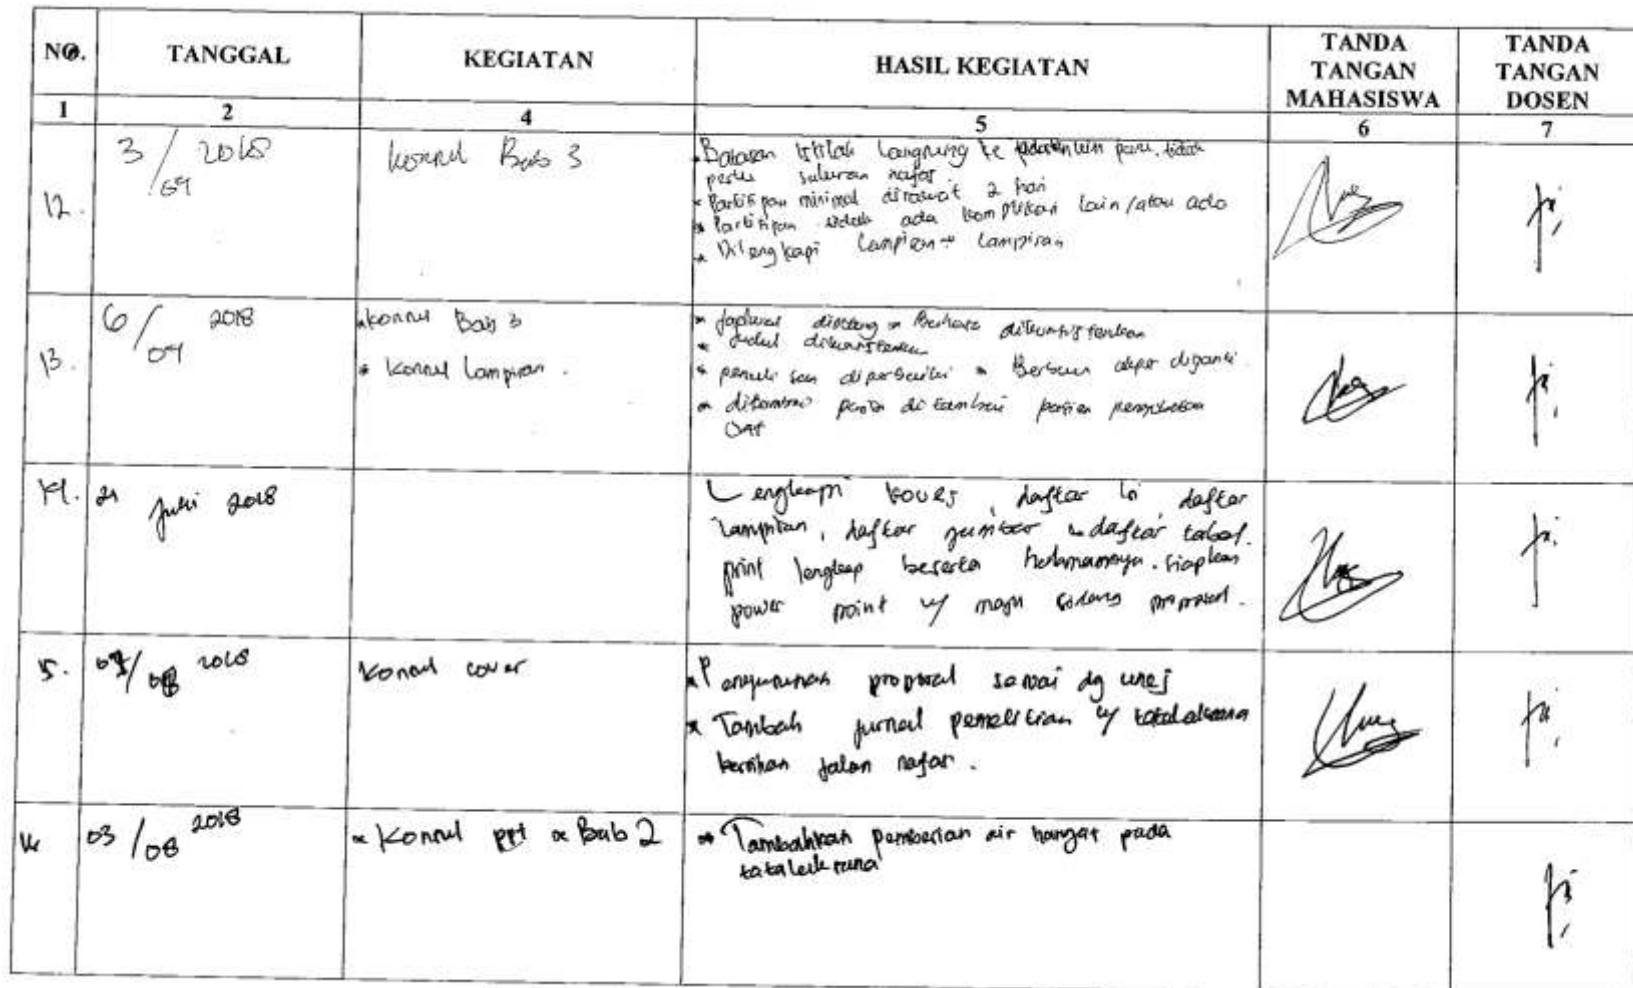 NO. TANGGAL KEGIATAN HASIL KEGIATAN TANDA TANGAN MAHASISWA TANDA TANGAN DOSEN
1 2 4 5 6 7
12. 3/09 2018 konsul Bab 3
Batasan istilah langsung ke paru, tidak
perlu saluran nafas.
* Partisipan minimal dirawat 2 hari
* Partisipan tidak ada komplikasi lain/atau ada
* Dilengkapi lampiran - lampiran
13. 6/09 2018
* konsul Bab 3
* Konsul lampiran.
* Judul dikonsistenkan
* penulisan diperbaiki * diganti
* pasien pengobatan
OAT
14. 21 Juli 2018
Lengkapi cover, daftar isi, daftar
lampiran, daftar gambar & daftar tabel.
print lengkap beserta halamannya. siapkan
power point u/ maju sidang proposal.
15. 2018 Konsul cover
* Penyusunan proposal sesuai dg unej
* Tambah jurnal penelitian u/ tatalaksana
bersihan jalan nafas.
16 03/08 2018 * Konsul ppt * Bab 2
* Tambahkan pemberian air hangat pada
tatalaksana